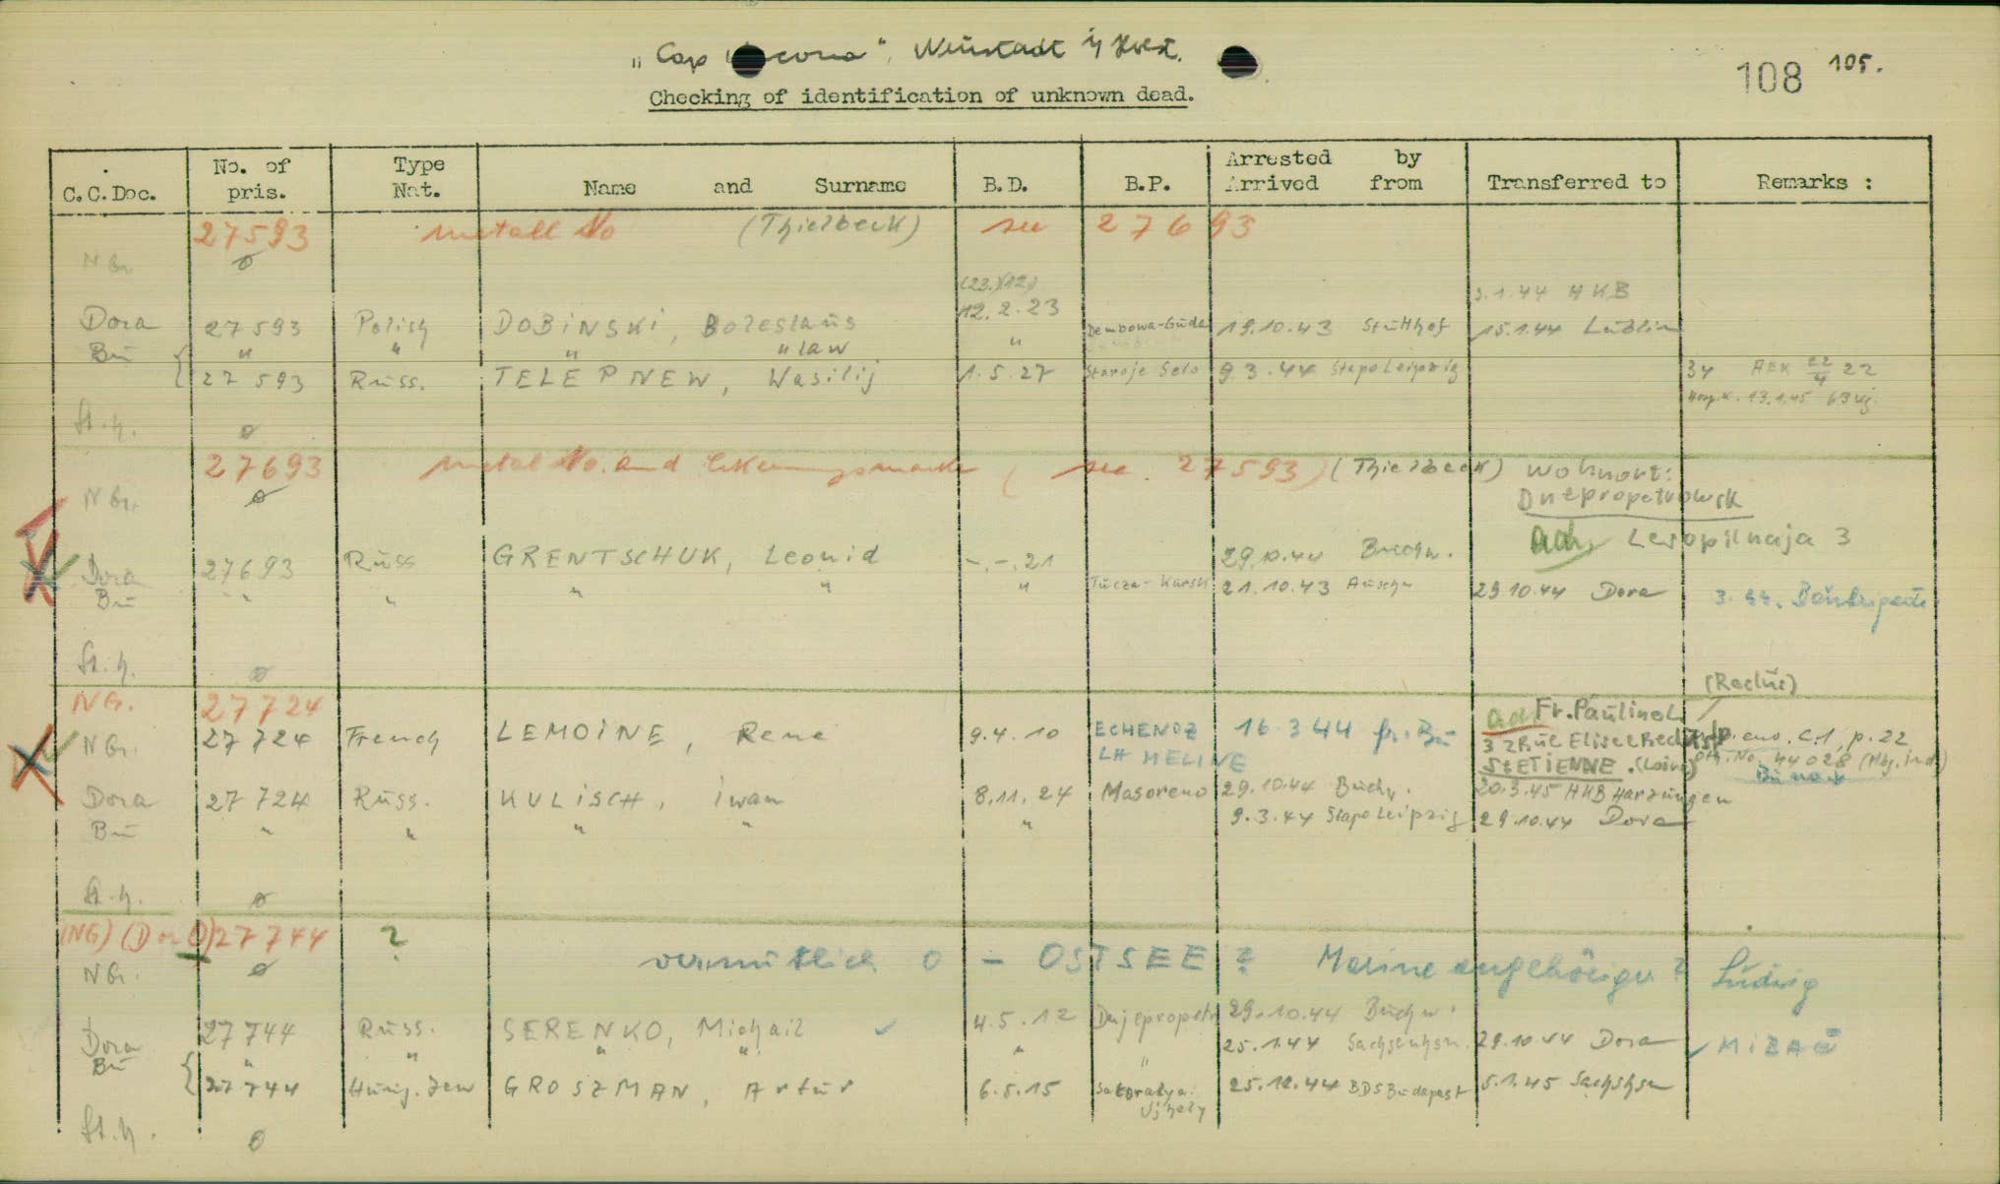 "Cap cona", Neustadt i/ Holst.
108 105.
Checking of identification of unknown dead.
C.C.Doc. No. of pris. Type Nat. Name and Surname B.D. B.P. Arrested by Arrived from Transferred to Remarks :
27593 metall No (Thielbeck) see 27693
N Gr. ø
(23.)(12.) 3.1.44 HKB
Dora 27593 Polish DOBINSKI, Boleslaus 12.2.23 Dembowa-Guda 19.10.43 Stutthof 15.1.44 Lublin
Bu " " " "law "
27593 Russ. TELEPNEW, Wasilij 1.5.27 Staroje Selo 9.3.44 Stapo Leipzig 34 22/4 22
13.1.45 63 kg.
St.h. ø
27693 metal No. and Erkennungsmarke (see 27593) (Thielbeck) Wohnort:
N Gr. ø Dnepropetrowsk
ad. Lesopilnaja 3
Dora 27693 Russ GRENTSCHUK, Leonid -.-.21 29.10.44 Buchw.
Bu " " " " " " Tucza-Karsk 21.10.43 Auschw 29.10.44 Dora 3. Baubrigade
St.h. ø
(Reclus)
NG. 27724 ad Fr. Paulinot
N Gr. 27724 French LEMOINE, Rene 9.4.10 ECHENOZ 16.3.44 fr. Bu 32 Rue Elisee Reclus p. eno. C.1, p.22
LA MELINE St ETIENNE. (Loire) No. 44028
Dora 27724 Russ. KULISCH, Iwan 8.11.24 Masoreno 29.10.44 Buchw. 20.3.45 HKB Harzungen
Bu " " " " " 9.3.44 Stapo Leipzig 29.10.44 Dora
St.h. ø
(NG) (Dora) 27744 ?
N Gr. ø vermutlich O - OSTSEE? Marineangehöriger? Ludwig
Dora 27744 Russ. SERENKO, Michail 4.5.12 Dnjepropetr 29.10.44 Buchw.
Bu " " " " " " 25.1.44 Sachsenhsn. 29.10.44 Dora MIZAU
27744 Hung. Jew GROSZMAN, Artur 6.5.15 Satoralya. Ujhely 25.12.44 BDS Budapest 5.1.45 Sachshsn
St.h. ø